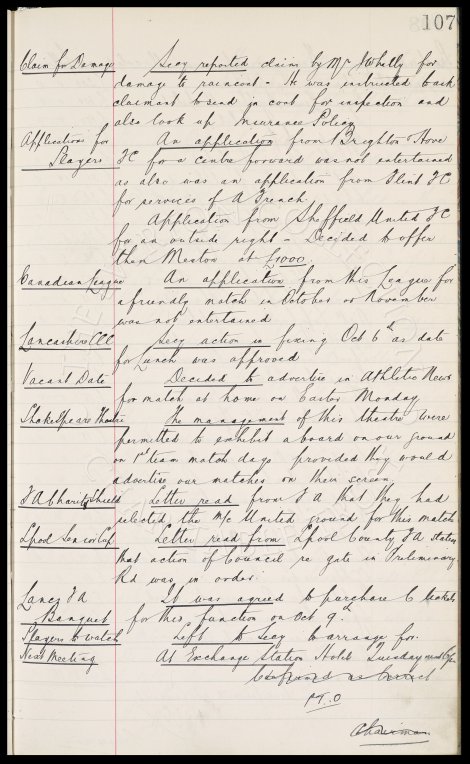 107
Claim for Damage Secy reported claim by Mr J Whelly for
damage to raincoat - He was instructed to ask
claimant to send in coat for inspection and
also look up Insurance Policy
Applications for An application from Brighton Hove
Players FC for a centre forward was not entertained
as also was an application from Flint FC
for services of A French.
Application from Sheffield United FC
for an outside right - Decided to offer
them Meston at £1000.
Canadian League An application from this League for
a friendly match in October or November
was not entertained
Lancashire CCC Secy action in fixing Oct 6th as date
for Lunch was approved
Vacant Date Decided to advertise in Athletic News
for match at home on Easter Monday
Shakespeare Theatre The management of this theatre were
permitted to exhibit a board on our ground
on 1st team match days provided they would
advertise our matches on their screen
FA Charity Shield Letter read from FA that they had
selected the M/c United ground for this match
Lpool Senior Cup Letter read from Lpool County FA stating
that action of Council re gate in Preliminary
Rd was in order.
Lancs FA It was agreed to purchase 6 tickets
Banquet for this function on Oct 9th
Players to watch Left to Secy to arrange for.
Next Meeting At Exchange Station Hotel Tuesday next
Confirmed as Correct
P.T.O
Chairman